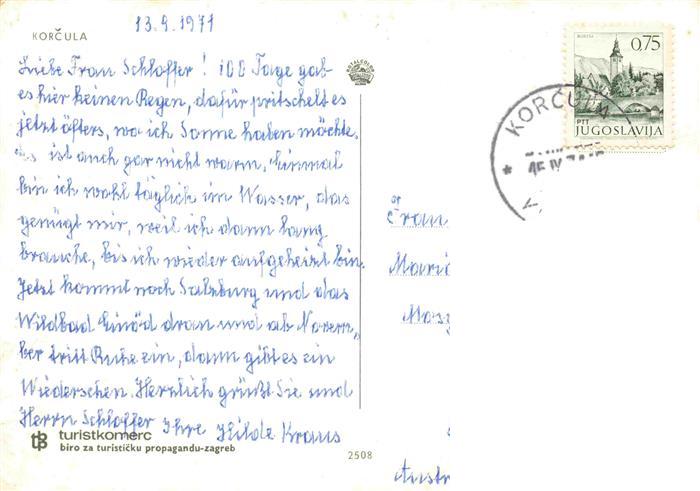 13.9.1971
KORČULA
Liebe Frau Schloffer! 100 Tage gab
es hier keinen Regen, dafür pritschelt es
jetzt öfters, wo ich Sonne haben möchte.
Es ist auch gar nicht warm. Einmal
bin ich wohl täglich im Wasser, das
genügt mir, weil ich dann lang
brauche, bis ich wieder aufgeheizt bin.
Jetzt kommt noch Salzburg und das
Wildbad Einöd dran und ab Novem„
ber tritt Ruhe ein, dann gibt es ein
Wiedersehen. Herzlich grüßt Sie und
Herrn Schloffer Ihre Hilde Kraus
tb turistkomerc
biro za turističku propagandu-zagreb
2508
0,75
PTT
JUGOSLAVIJA
KORČULA
Frau
Maria
Austr